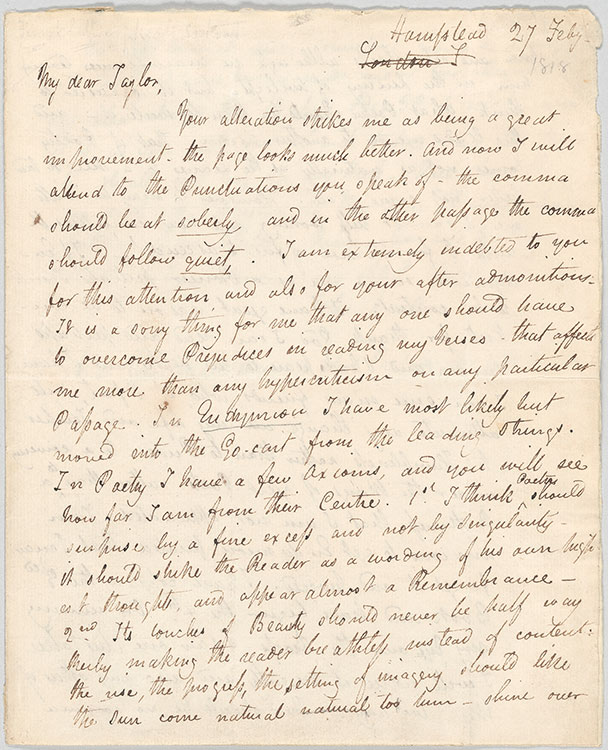 Hampstead 27 Feby-
London F
1818
My dear Taylor,
Your alteration strikes me as being a great
improvement - the page looks much better. And now I will
attend to the Punctuations you speak of - the comma
should be at soberly, and in the other passage the comma
should follow quiet, . I am extremely indebted to you
for this attention and also for your after admonitions-
It is a sorry thing for me that any one should have
to overcome Prejudices in reading my Verses - that affects
me more than any hypercriticism on any particular
Passage. In Endymion I have most likely but
moved into the Go-cart from the leading strings.
In Poetry I have a few Axioms, and you will see
how far I am from their Centre. 1st I think Poetry should
surprise by a fine excess and not by Singularity -
it should strike the Reader as a wording of his own high-
est thoughts, and appear almost a Remembrance -
2nd Its touches of Beauty should never be half way
therby making the reader breathless instead of content:
the rise, the progress, the setting of imagery should like
the Sun come natural natural too him - shine over